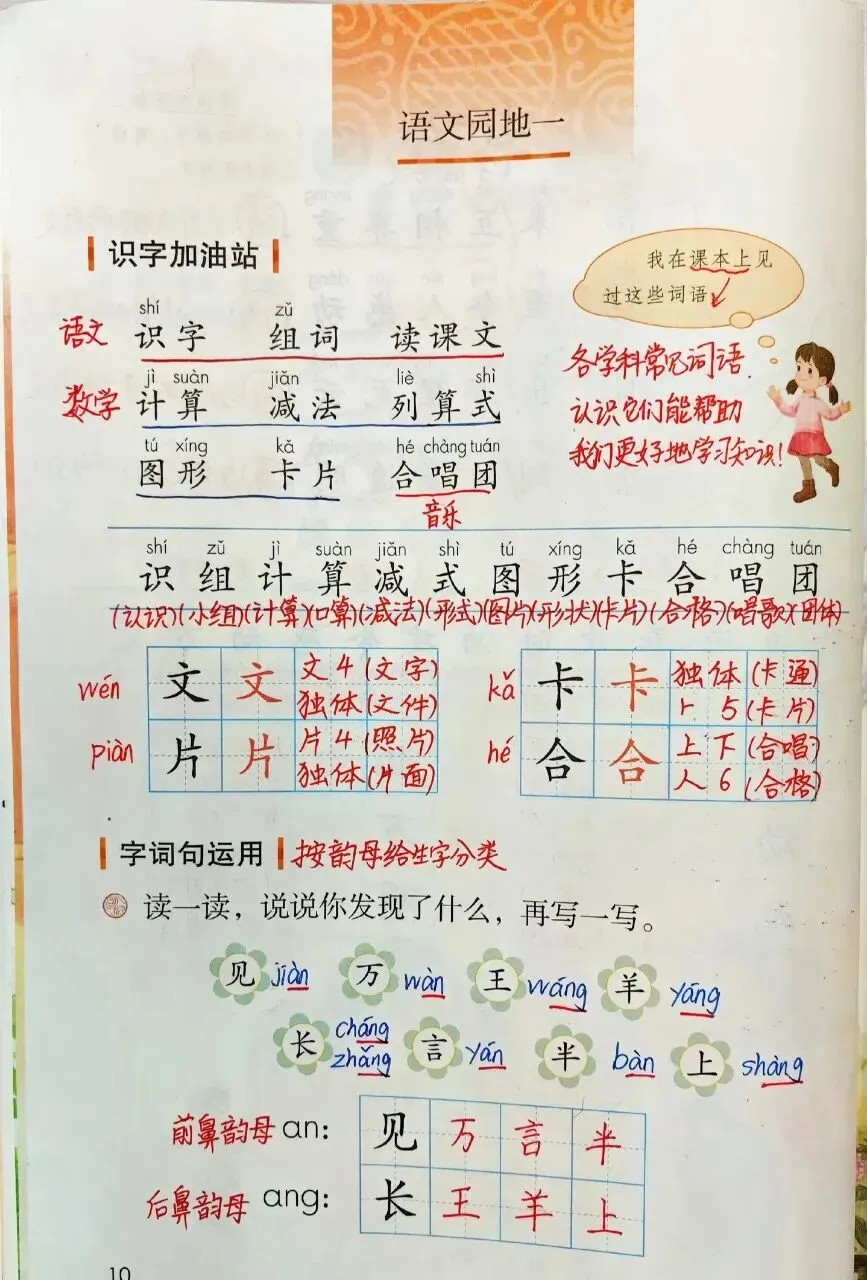 语文园地一
识字加油站
我在课本上见
过这些词语
shí zǔ
语文 识字 组词 读课文
各学科常见词语
认识它们能帮助
我们更好地学习知识!
jì suàn jiǎn liè shì
数学 计算 减法 列算式
tú xíng kǎ hé chàng tuán
图形 卡片 合唱团
音乐
shí zǔ jì suàn jiǎn shì tú xíng kǎ hé chàng tuán
识 组 计 算 减 式 图 形 卡 合 唱 团
(认识)(小组)(计算)(口算)(减法)(形式)(图片)(形状)(卡片)(合格)(唱歌)(团体)
wén 文 文 文4(文字)
独体(文件)
piàn 片 片 片4(照片)
独体(片面)
kǎ 卡 卡 独体(卡通)
⺊5(卡片)
hé 合 合 上下(合唱)
人6(合格)
字词句运用 按韵母给生字分类
读一读,说说你发现了什么,再写一写。
见 jiàn 万 wàn 王 wáng 羊 yáng
长 cháng zhǎng 言 yán 半 bàn 上 shàng
前鼻韵母 an: 见 万 言 半
后鼻韵母 ang: 长 王 羊 上
10